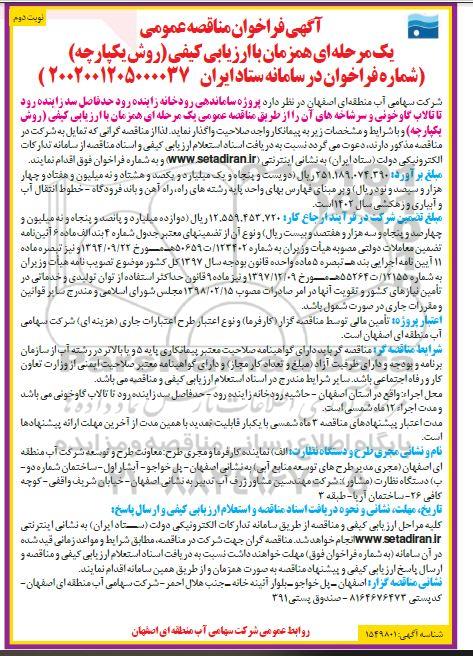 نوبت دوم
آگهی فراخوان مناقصه عمومی
یک مرحله‌ای همزمان با ارزیابی کیفی (روش یکپارچه)
(شماره فراخوان در سامانه ستاد ایران ۲۰۰۲۰۰۱۲۰۵۰۰۰۰۳۷)
شرکت سهامی آب منطقه‌ای اصفهان در نظر دارد پروژه ساماندهی رودخانه زاینده رود حدفاصل سد زاینده رود
تا تالاب گاوخونی و سرشاخه های آن را از طریق مناقصه عمومی یک مرحله ای همزمان با ارزیابی کیفی (روش
یکپارچه) و با شرایط و مشخصات زیر به پیمانکار واجد صلاحیت واگذار نماید. لذا از مناقصه گرانی که تمایل به شرکت در
مناقصه مذکور دارند، دعوت می گردد نسبت به دریافت اسناد استعلام ارزیابی کیفی و اسناد مناقصه از سامانه تدارکات
الکترونیکی دولت (ستاد ایران) به نشانی اینترنتی www.setadiran.ir و به شماره فراخوان فوق اقدام نمایند.
مبلغ برآورد: ۲۵۱,۱۸۹,۰۷۴,۳۹۰ ریال (دویست و پنجاه و یک میلیارد و یکصد و هشتاد و نه میلیون و هفتاد و چهار
هزار و سیصد و نود ریال) و بر مبنای فهارس بهای واحد پایه رشته های راه، راه آهن و باند فرودگاه - خطوط انتقال آب
و آبیاری و زهکشی سال ۱۴۰۲ است.
مبلغ تضمین شرکت در فرآیند ارجاع کار: ۱۲,۵۵۹,۴۵۳,۷۲۰ ریال (دوازده میلیارد و پانصد و پنجاه و نه میلیون و
چهارصد و پنجاه و سه هزار و هفتصد و بیست ریال) و نوع آن از تضمینهای معتبر جدول شماره ۴ بند الف ماده ۶ آئین نامه
تضمین معاملات دولتی مصوبه هیأت وزیران به شماره ۱۲۳۴۰۲/ت۵۰۶۵۹هـ مورخ ۱۳۹۴/۰۹/۲۲ و نیز تبصره ماده
۱۱ آیین نامه اجرایی بند هـ تبصره ۵ ماده واحده قانون بودجه سال ۱۳۹۷ کل کشور موضوع تصویب نامه هیأت وزیران
به شماره ۱۲۱۵۵/ت۵۵۲۶۴هـ مورخ ۱۳۹۷/۰۲/۰۹ و نیز ماده ۹ قانون حداکثر استفاده از توان تولیدی و خدماتی در
تأمین نیازهای کشور و تقویت آنها در امر صادرات مصوب ۱۳۹۸/۰۲/۱۵ مجلس شورای اسلامی و مندرج سایر قوانین
و مقررات جاری در صورت شمول باشد.
اعتبار پروژه: تأمین مالی توسط مناقصه گزار (کارفرما) و نوع اعتبار طرح اعتبارات جاری (هزینه ای) شرکت سهامی
آب منطقه ای اصفهان است.
شرایط مناقصه گر: مناقصه گر باید دارای گواهینامه صلاحیت معتبر پیمانکاری پایه ۵ و یا بالاتر در رشته آب از سازمان
برنامه و بودجه و دارای ظرفیت آزاد (مبلغ و تعداد کار مجاز) و دارای گواهینامه معتبر صلاحیت ایمنی از وزارت تعاون
کار و رفاه اجتماعی باشد. سایر شرایط مندرج در اسناد استعلام ارزیابی کیفی و مناقصه می باشد.
محل اجرا: واقع در استان اصفهان - حاشیه رودخانه زاینده رود - حدفاصل سد زاینده رود تا تالاب گاوخونی می باشد
و مدت اجرا: ۱۲ ماه شمسی است.
مدت اعتبار پیشنهادهای مناقصه ۳ ماه شمسی با یکبار قابلیت تمدید با همین مدت از آخرین مهلت ارائه پیشنهادها
است.
نام و نشانی مجری طرح و دستگاه نظارت: الف) نماینده کارفرما و مجری طرح: معاونت طرح و توسعه شرکت آب منطقه
ای اصفهان (مجری مدیر طرح های توسعه منابع آبی) به نشانی اصفهان - پل خواجو - آبشار اول - ساختمان شماره دو -
ب) دستگاه نظارت (مشاور): شرکت مهندسین مشاور ژرف آب تدبیر به نشانی اصفهان - خیابان شریف واقفی - کوچه
کافی ۲۶ - ساختمان آریا - طبقه ۳
تاریخ، مهلت، نشانی و نحوه دریافت اسناد مناقصه و استعلام ارزیابی کیفی و ارسال پاسخ:
کلیه مراحل ارزیابی کیفی و مناقصه از طریق سامانه تدارکات الکترونیکی دولت (ستاد ایران) به نشانی اینترنتی
www.setadiran.ir انجام خواهد شد. مناقصه گران جهت شرکت در مناقصه، مطابق شرایط و مواعد زمانی قید شده
در آن سامانه (به شماره فراخوان فوق) مهلت خواهند داشت نسبت به دریافت اسناد استعلام ارزیابی کیفی و مناقصه و
ارسال پاسخ ارزیابی کیفی و پیشنهاد مناقصه به صورت همزمان و از طریق همین سامانه اقدام نمایند.
نشانی مناقصه گزار: اصفهان - پل خواجو - بلوار آئینه خانه - جنب هلال احمر - شرکت سهامی آب منطقه ای اصفهان -
کدپستی ۸۱۶۴۶۷۶۴۷۳ - صندوق پستی ۳۹۱
روابط عمومی شرکت سهامی آب منطقه ای اصفهان
شناسه آگهی: ۱۵۴۹۸۰۱